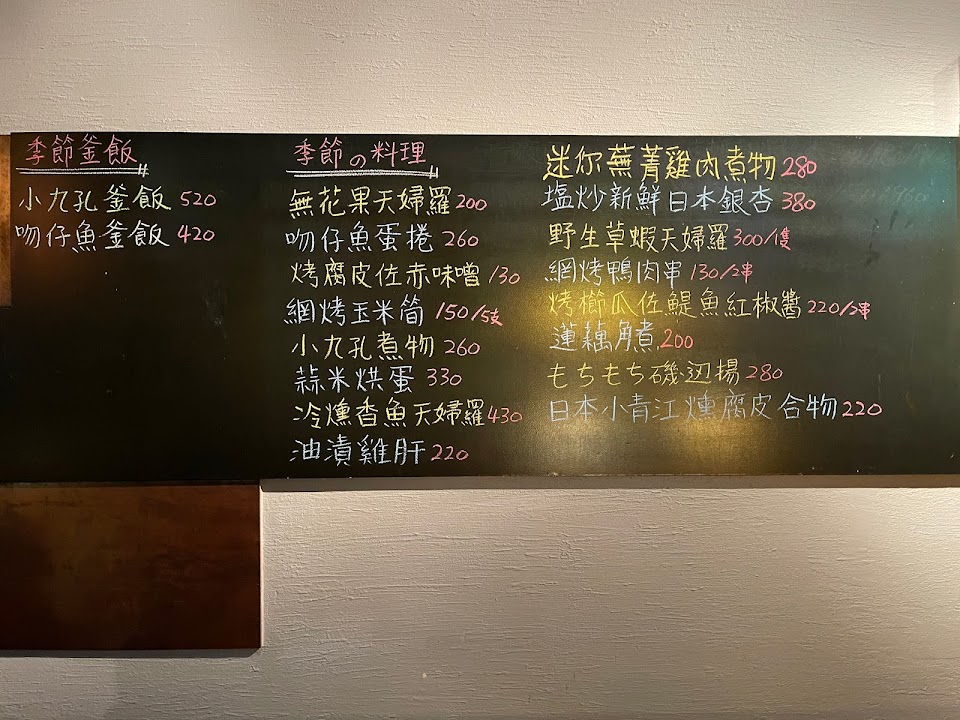 季節釜飯
小九孔釜飯 520
吻仔魚釜飯 420
季節の料理
無花果天婦羅 200
吻仔魚蛋捲 260
烤腐皮佐赤味噌 130
網烤玉米筒 150/5支
小九孔煮物 260
蒜米烘蛋 330
冷燻香魚天婦羅 430
油漬雞肝 220
迷你蕪菁雞肉煮物 280
塩炒新鮮日本銀杏 380
野生草蝦天婦羅 300/隻
網烤鴨肉串 130/2串
烤櫛瓜佐鯷魚紅椒醬 220/2串
蓮藕角煮 200
もちもち磯辺揚 280
日本小青江燻腐皮合物 220